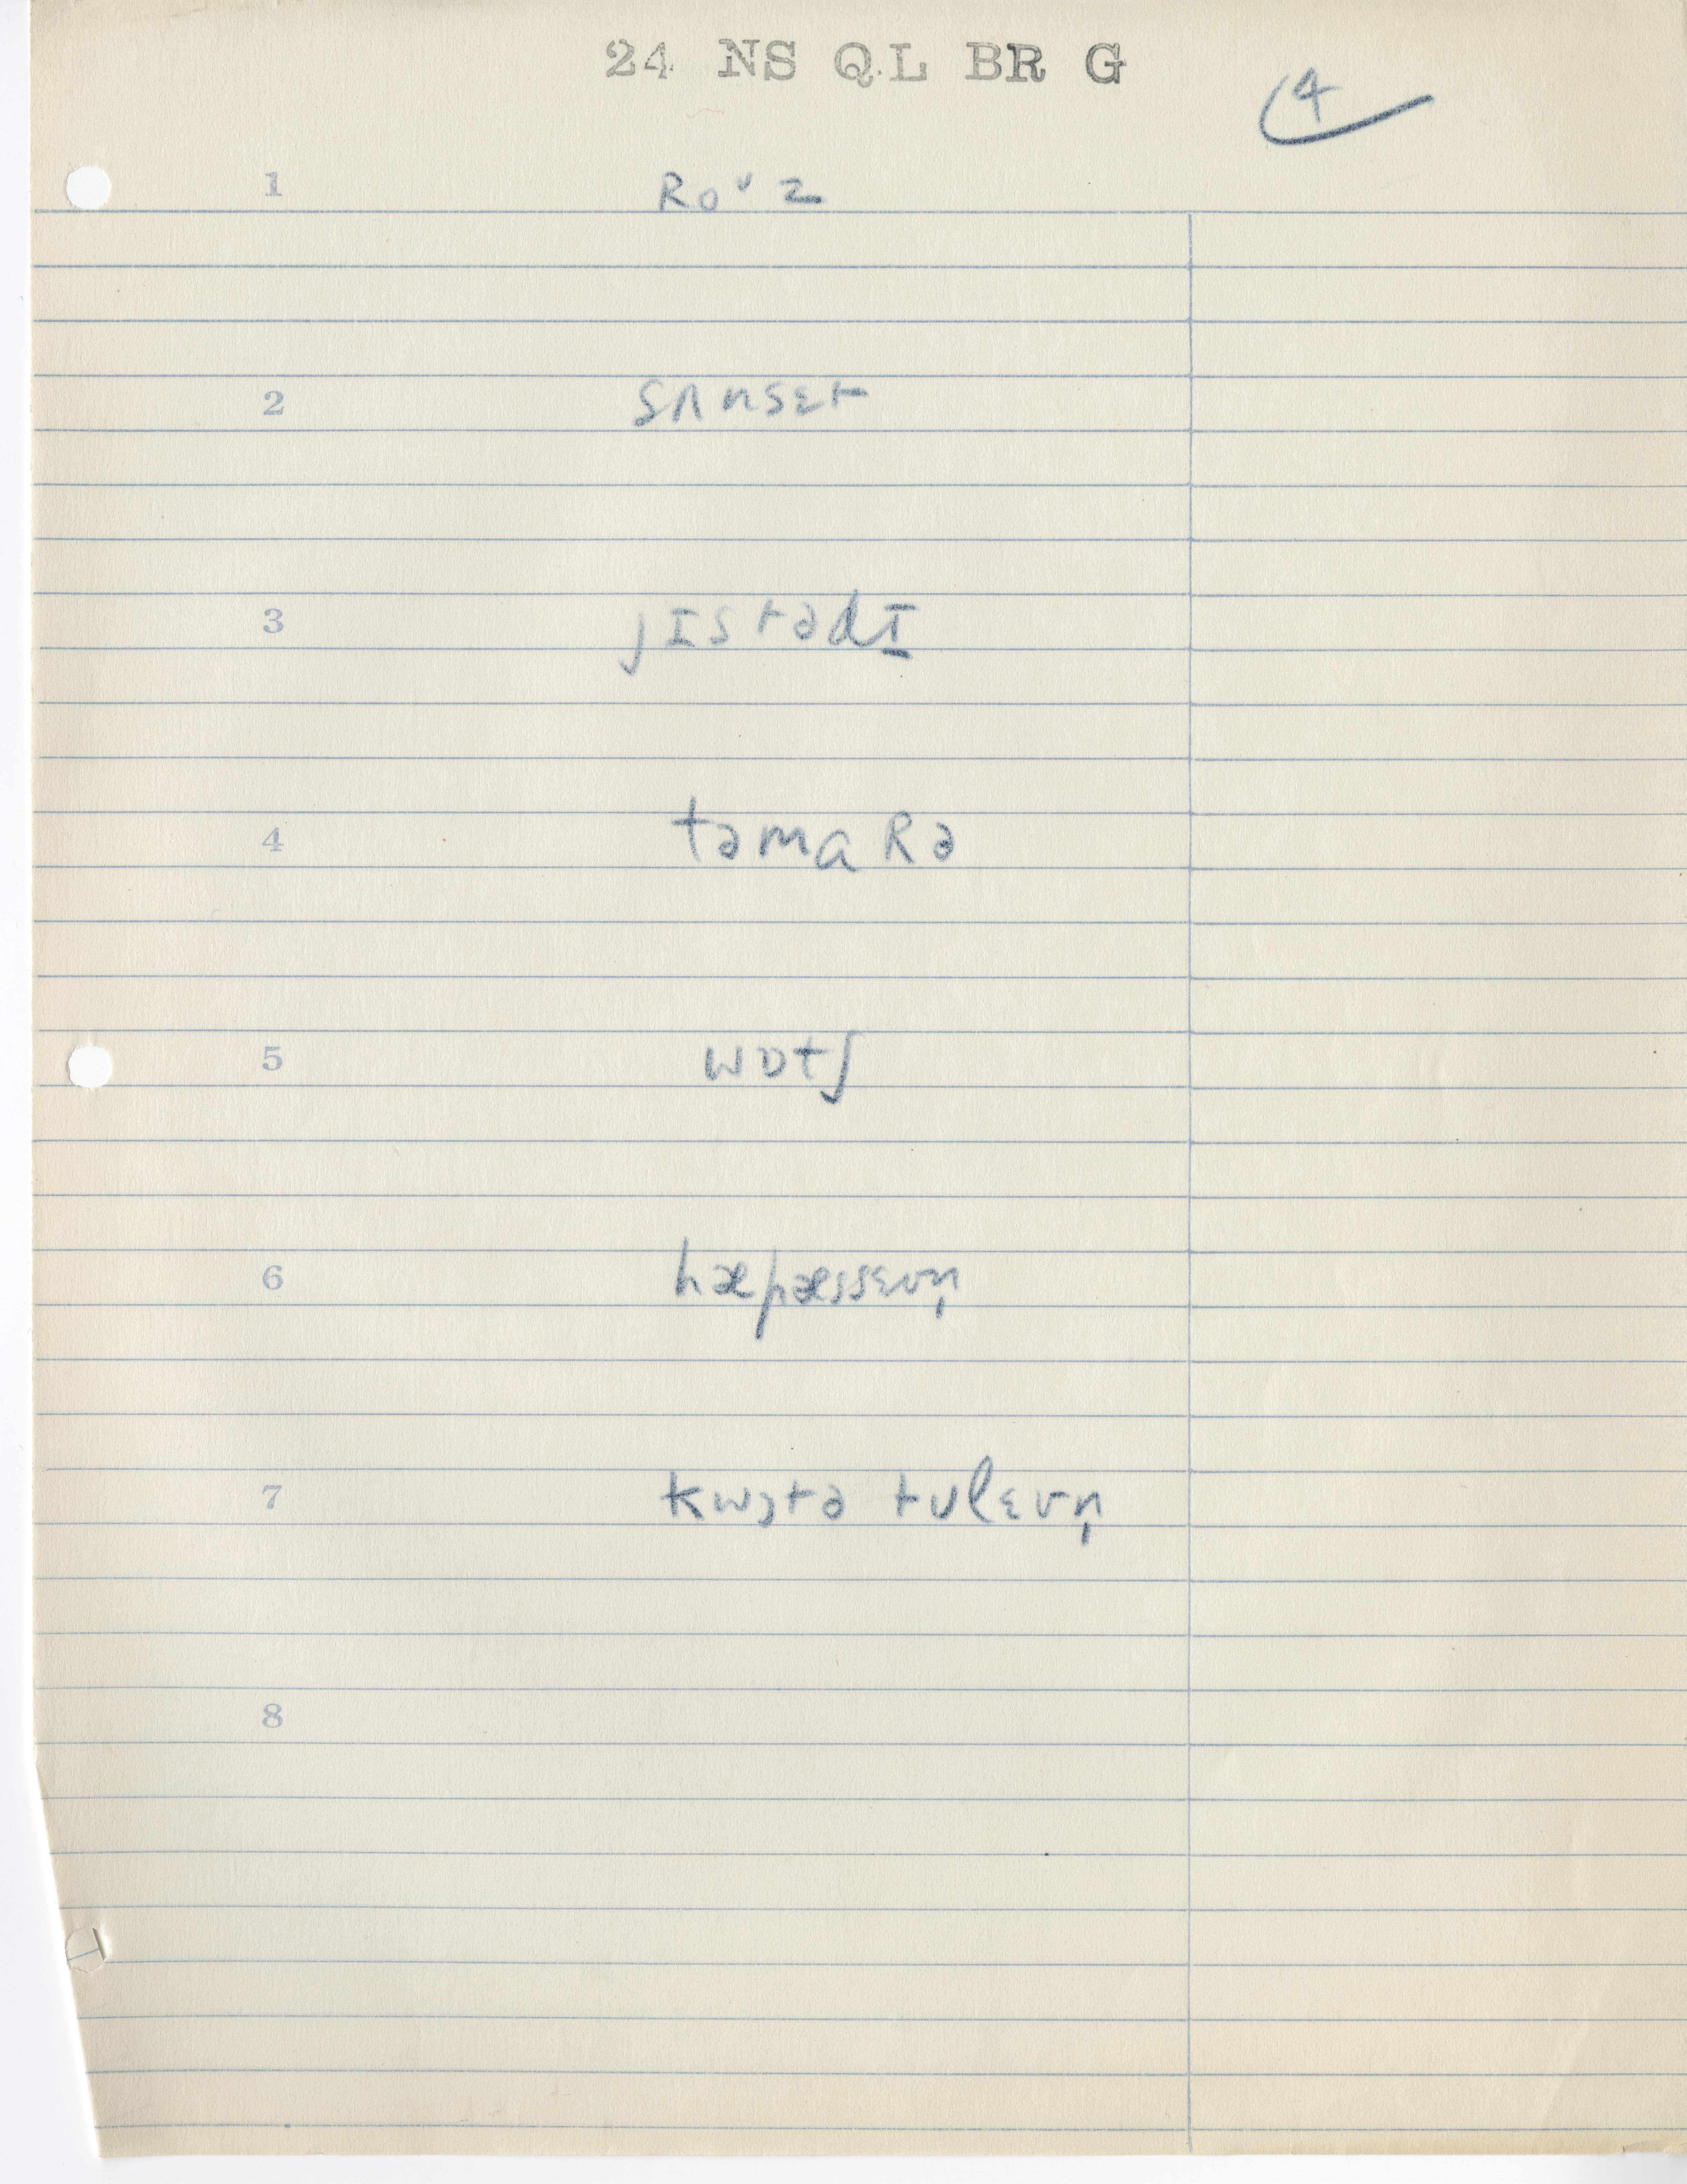 24 NS QL BR G
4
1 Roᵁz
2 sʌnsɛt
3 jɪstədɪ̠
4 təmaRə
5 wɒtʃ
6 hæpæssɛvn̩
7 kwɔtə tʊlɛvn̩
8